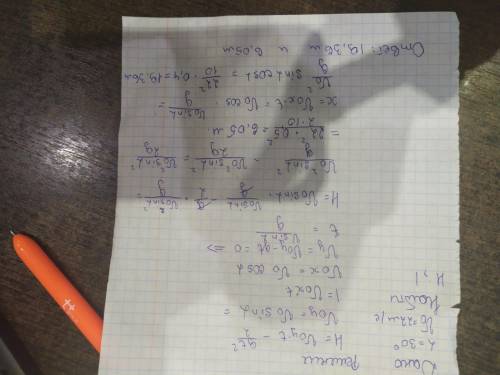 Дано Решение
α = 30°
V₀ = 22 м/с
Найти
H, l
H = V₀y·t − gt²/2
V₀y = V₀ sinα =
l = V₀x t
V₀x = V₀ cosα
Vy = V₀y − gt = 0 ⇒
t = V₀ sinα/g
H = V₀ sinα · V₀ sinα/g − g/2 · V₀² sin²α/g² =
V₀² sin²α/g − V₀² sin²α/2g = V₀² sin²α/2g
= 22² · 0,5²/2·10 = 6,05 м.
x = V₀x·t = V₀ cos · V₀ sinα/g =
V₀²/g sinα cosα = 22²/10 · 0,4 = 19,36 м
Ответ: 19,36 м и 6,05 м